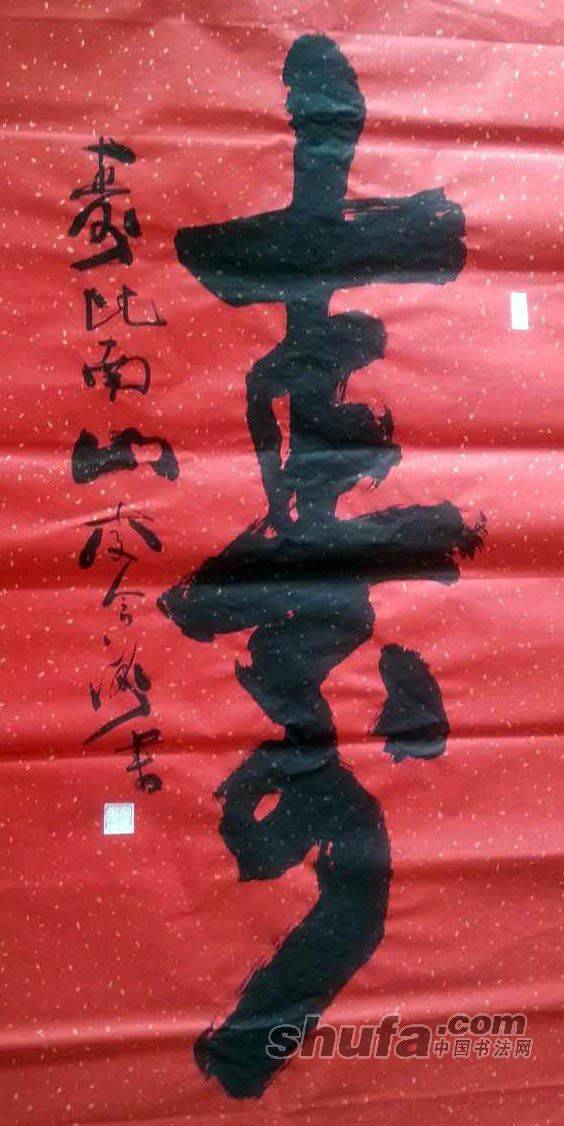 壽
壽比南山 李金海書
shufa.com
中国书法网